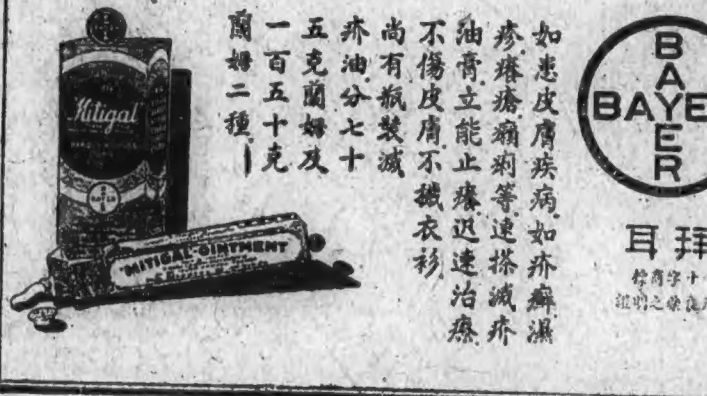 BAYER
BAYE
拜耳
如患皮膚疾病如疥癬濕
疹癢瘡癩痢等速搽滅疥
油膏立能止癢迅速治療
不傷皮膚不
衣衫
尚有瓶裝滅
疥油分七十
五克蘭姆及
一百五十克
蘭姆二種
Mitigal
BAYER
MITIGAL-OINTMENT